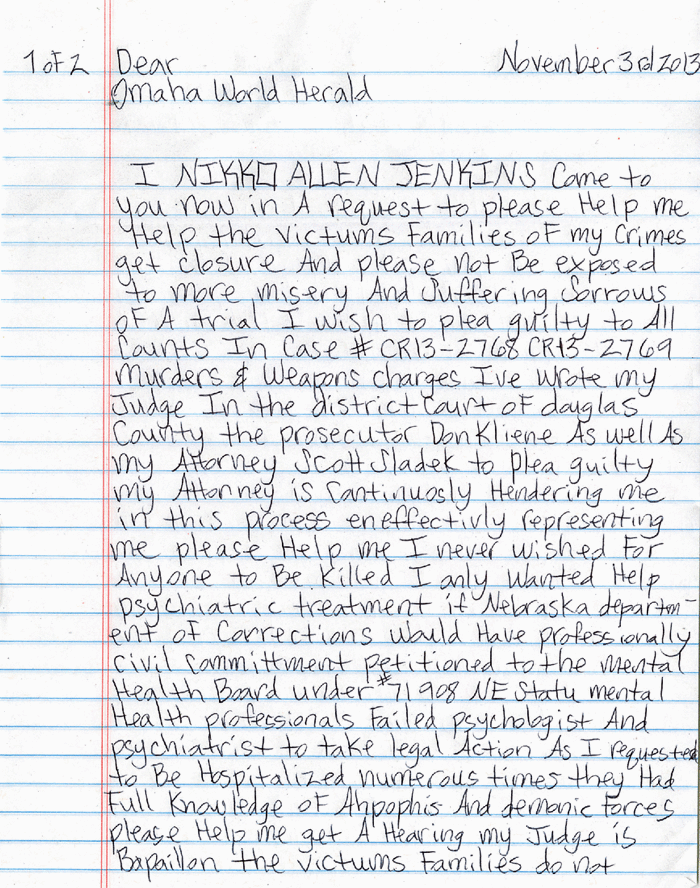 1 of 2 Dear November 3rd 2013
Omaha World Herald
I NIKKO ALLEN JENKINS Come to
you now in A request to please Help me
Help the victums Families of my Crimes
get closure And please not Be exposed
to more misery And Suffering Sorrows
of A trial I wish to plea guilty to All
Counts In Case # CR13-2768 CR13-2769
Murders & Weapons charges Ive wrote my
Judge In the district Court of douglas
County the prosecutor Don Kliene As well As
my Attorney Scott Sladek to plea guilty
my Attorney is Cantinuosly Hendering me
in this process eneffectivly representing
me please Help me I never wished For
Anyone to Be killed I only Wanted Help
psychiatric treatment if Nebraska departm-
ent of Corrections would Have professionally
civil Committment petitioned to the mental
Health Board under #71908 NE Statu mental
Health professionals Failed psychologist And
psychiatrist to take legal Action As I requested
to Be Hospitalized numerous times they Had
Full Knowledge of Ahpophis And demanic forces
please Help me get A Hearing my Judge is
Bapaillon the victums Families do not